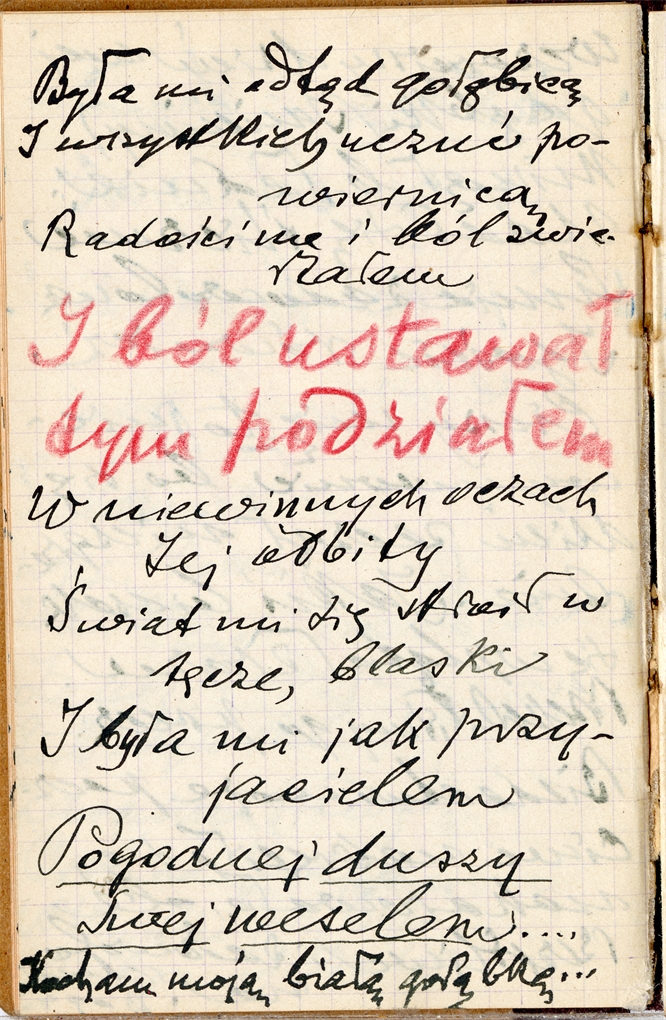 Była mi odtąd gołębicą
I wszystkich uczuć po-
wiernicą,
Radości me i ból zwie-
rzałem
I ból ustawał
tym podziałem
W niewinnych oczach
Jej odbity
Świat mi się stroił w
tęcze, blaski
I była mi jak przy-
jacielem
Pogodnej duszy
swej weselem....
Kocham moją białą gołąbkę...